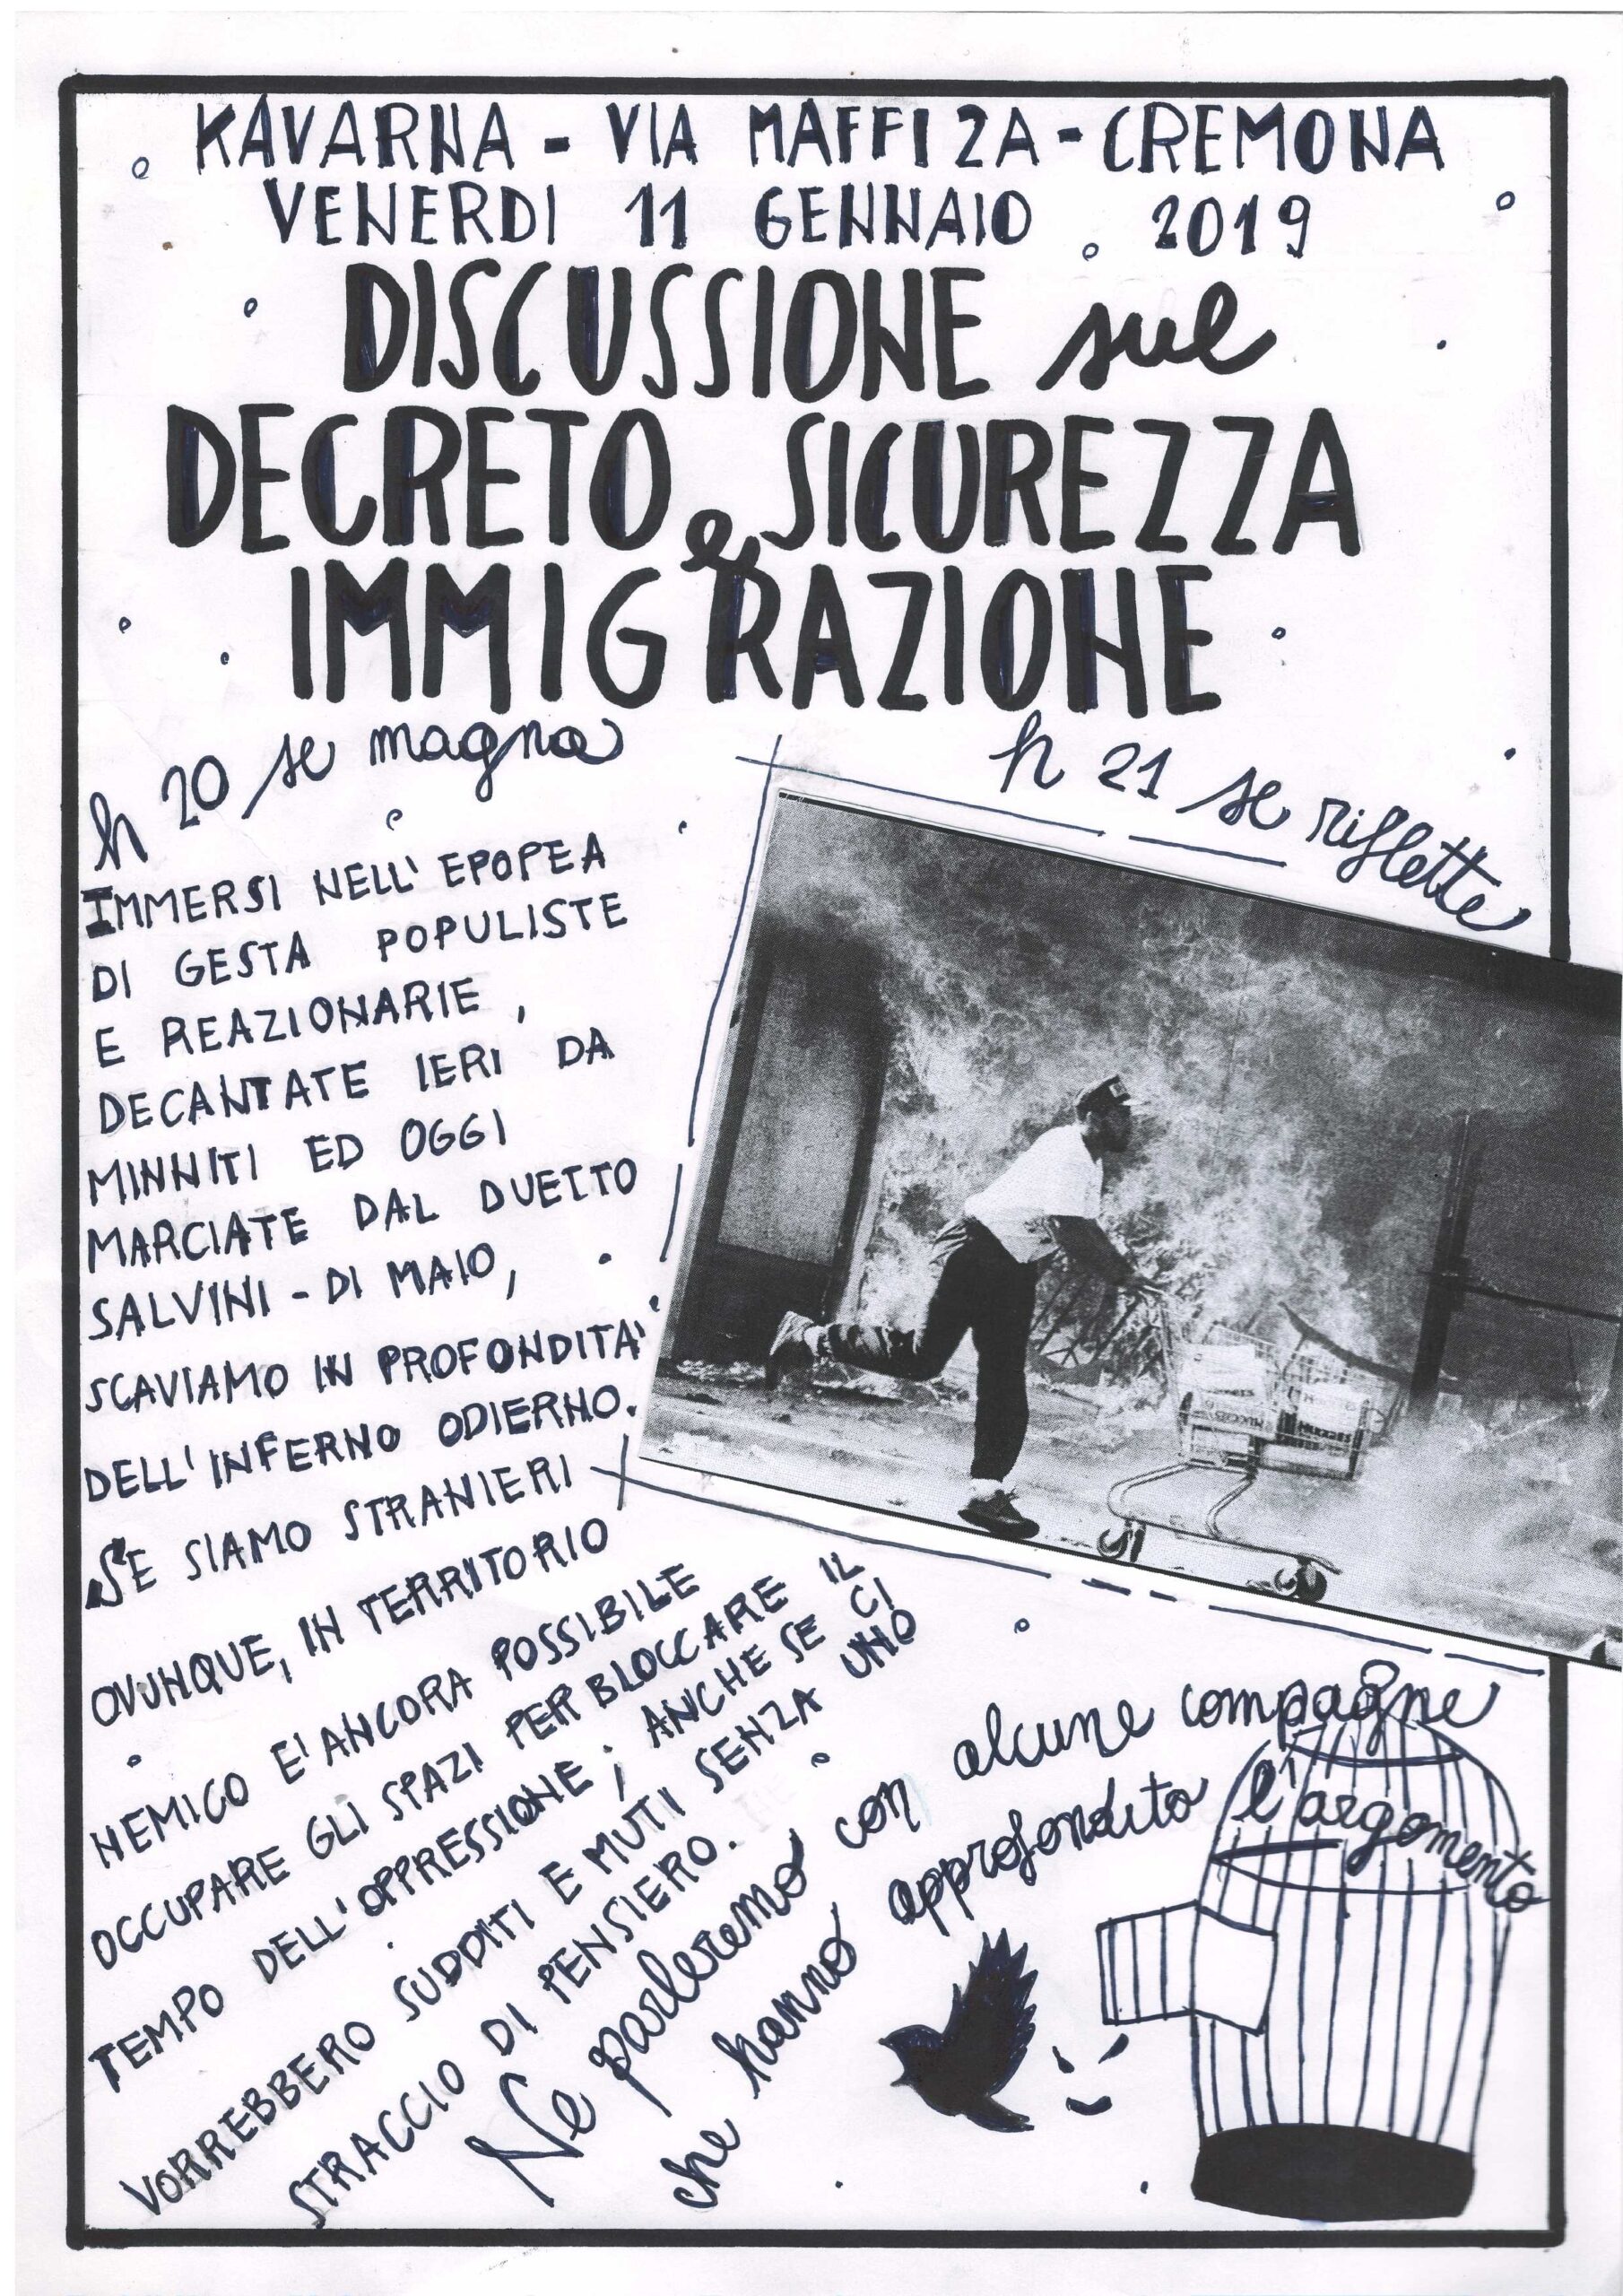 KAVARNA - VIA MAFFI 2A - CREMONA
VENERDI 11 GENNAIO 2019
DISCUSSIONE sul
DECRETO SICUREZZA
e
IMMIGRAZIONE
h 20 se magna
h 21 se riflette
IMMERSI NELL'EPOPEA
DI GESTA POPULISTE
E REAZIONARIE,
DECANTATE IERI DA
MINNITI ED OGGI
MARCIATE DAL DUETTO
SALVINI - DI MAIO,
SCAVIAMO IN PROFONDITA'
DELL'INFERNO ODIERNO.
SE SIAMO STRANIERI
OVUNQUE, IN TERRITORIO
NEMICO E' ANCORA POSSIBILE
OCCUPARE GLI SPAZI PER BLOCCARE IL
TEMPO DELL'OPPRESSIONE; ANCHE SE CI
VORREBBERO SUDDITI E MUTI SENZA UNO
STRACCIO DI PENSIERO.
Ne parleremo con alcune compagne
che hanno approfondito l'argomento